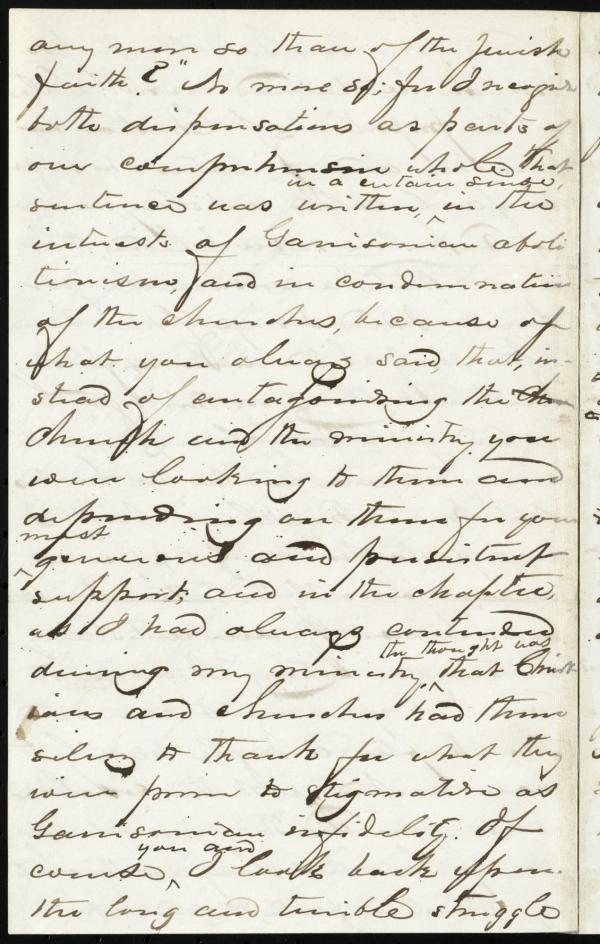 any more so than of the Jewish
faith?" No more so; for I recognize
both dispensations as parts of
one comprehensive whole. That
in a certain sense,
sentence was written, ^ in the
interests of Garrisonian aboli
tionism, and in condemnation
of the churches, because of
what you always said, that, in-
stead of antagonizing the
church and the ministry, you
were looking to them and
depending on them for your
most
^ generous and persistent
support; and in the chapter,
as I had always contended
the thought was
during my ministry, ^ that Christ
ians and churches had them
selves to thank for what they
were prone to stigmatize as
Garrisonian infidelity. Of
you and
course, ^ I look back upon
the long and terrible struggle